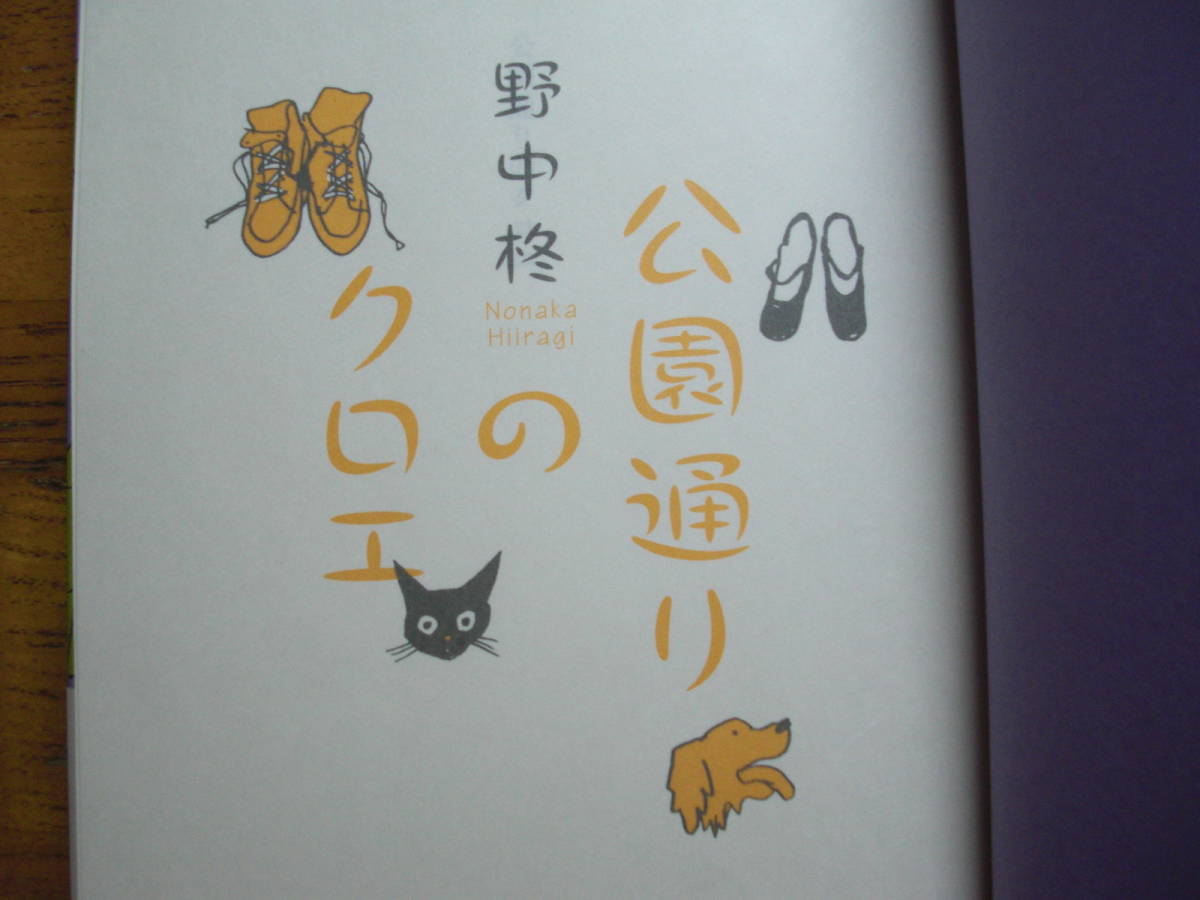 公園通り
の
クロエ
野中柊
Nonaka
Hiiragi